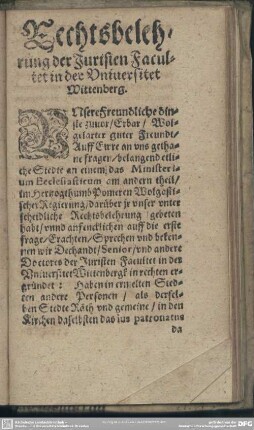 Rechtsbeleh-
rung der Juristen Facul-
tet in der Vniuersitet
Wittenberg.
VNsere Freundliche din-
ste zuuor / Erbar / Wol-
gelarter guter Freundt /
Auff Ewre an vns getha-
ne fragen / belangend etli-
che Stedte an einem / das Ministeri-
um Ecclesiasticum am andern theil /
im Hertzogthumb Pomern Wolgasti-
scher Regierung / darüber jr vnser vnter
scheidliche Rechtsbelehrung gebeten
habt / vnnd anfencklichen auff die erste
frage / Erachten / Sprechen vnd beken-
nen wir Dechandt / Senior / vnd andere
Doctores der Juristen Facultet in der
Vniuersitet Wittenbergk in rechten er-
gründet : Haben in ermelten Sted-
ten andere Personen / als dersel-
ben Stedte Räth vnd gemeine / in den
Kirchen daselbsten das ius patronatus
da